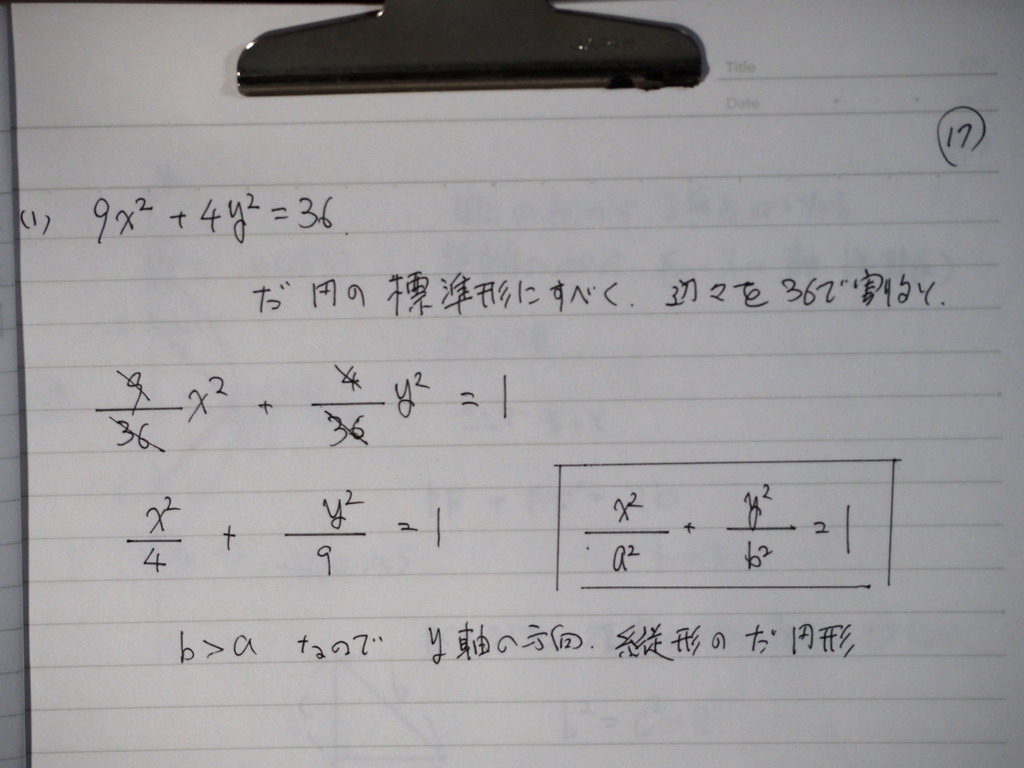 Title
Date
⑰
(1) 9x² + 4y² = 36.
だ円の標準形にすべく. 辺々を36で割ると.
9/36 x² + 4/36 y² = 1
x²/4 + y²/9 = 1
x²/a² + y²/b² = 1
b > a なので y軸の方向. 縦形のだ円形